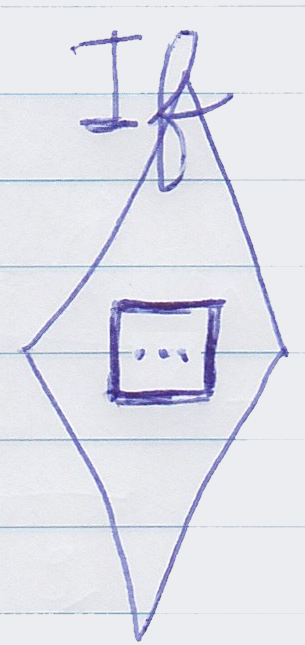 If
...